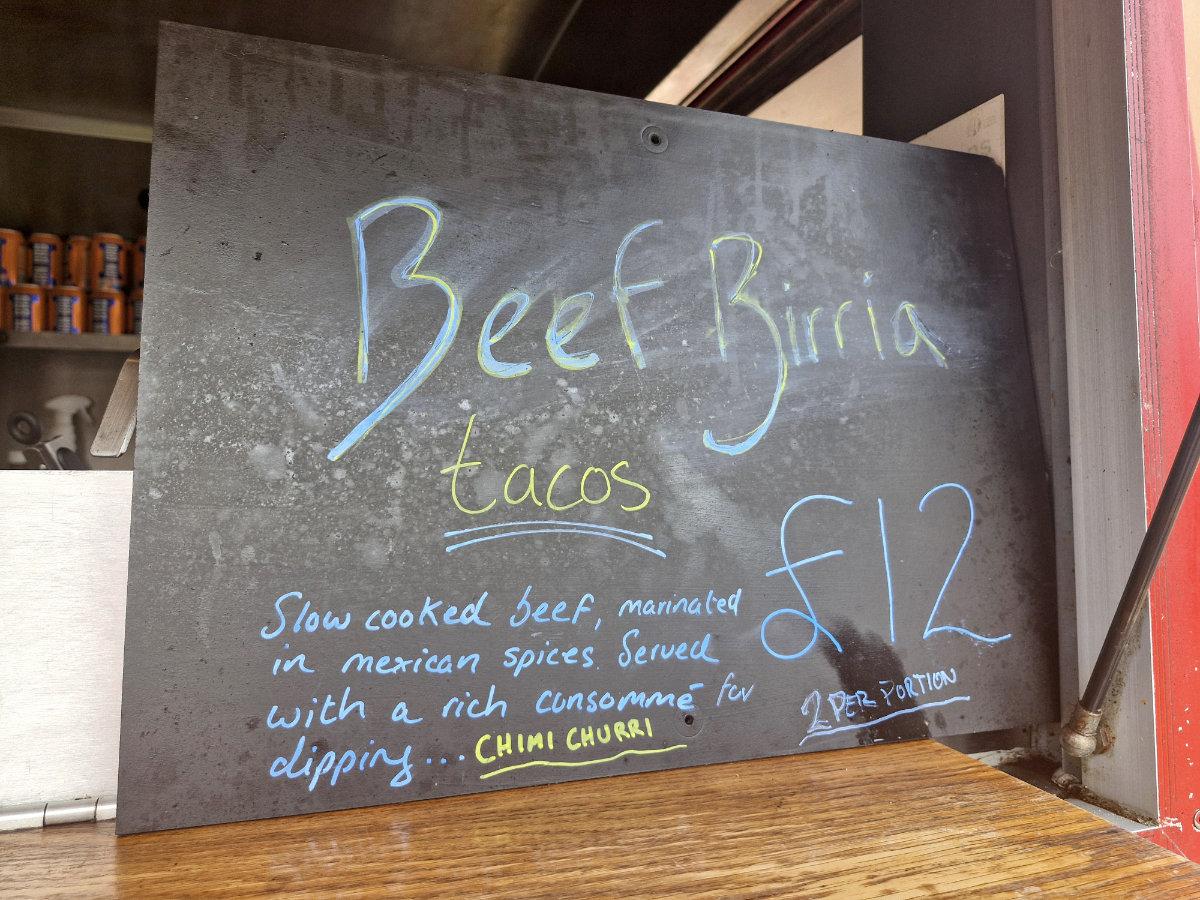 Beef Birria
tacos
£12
Slow cooked beef, marinated
in mexican spices. Served
with a rich consommé for
dipping... CHIMI CHURRI
2 PER PORTION